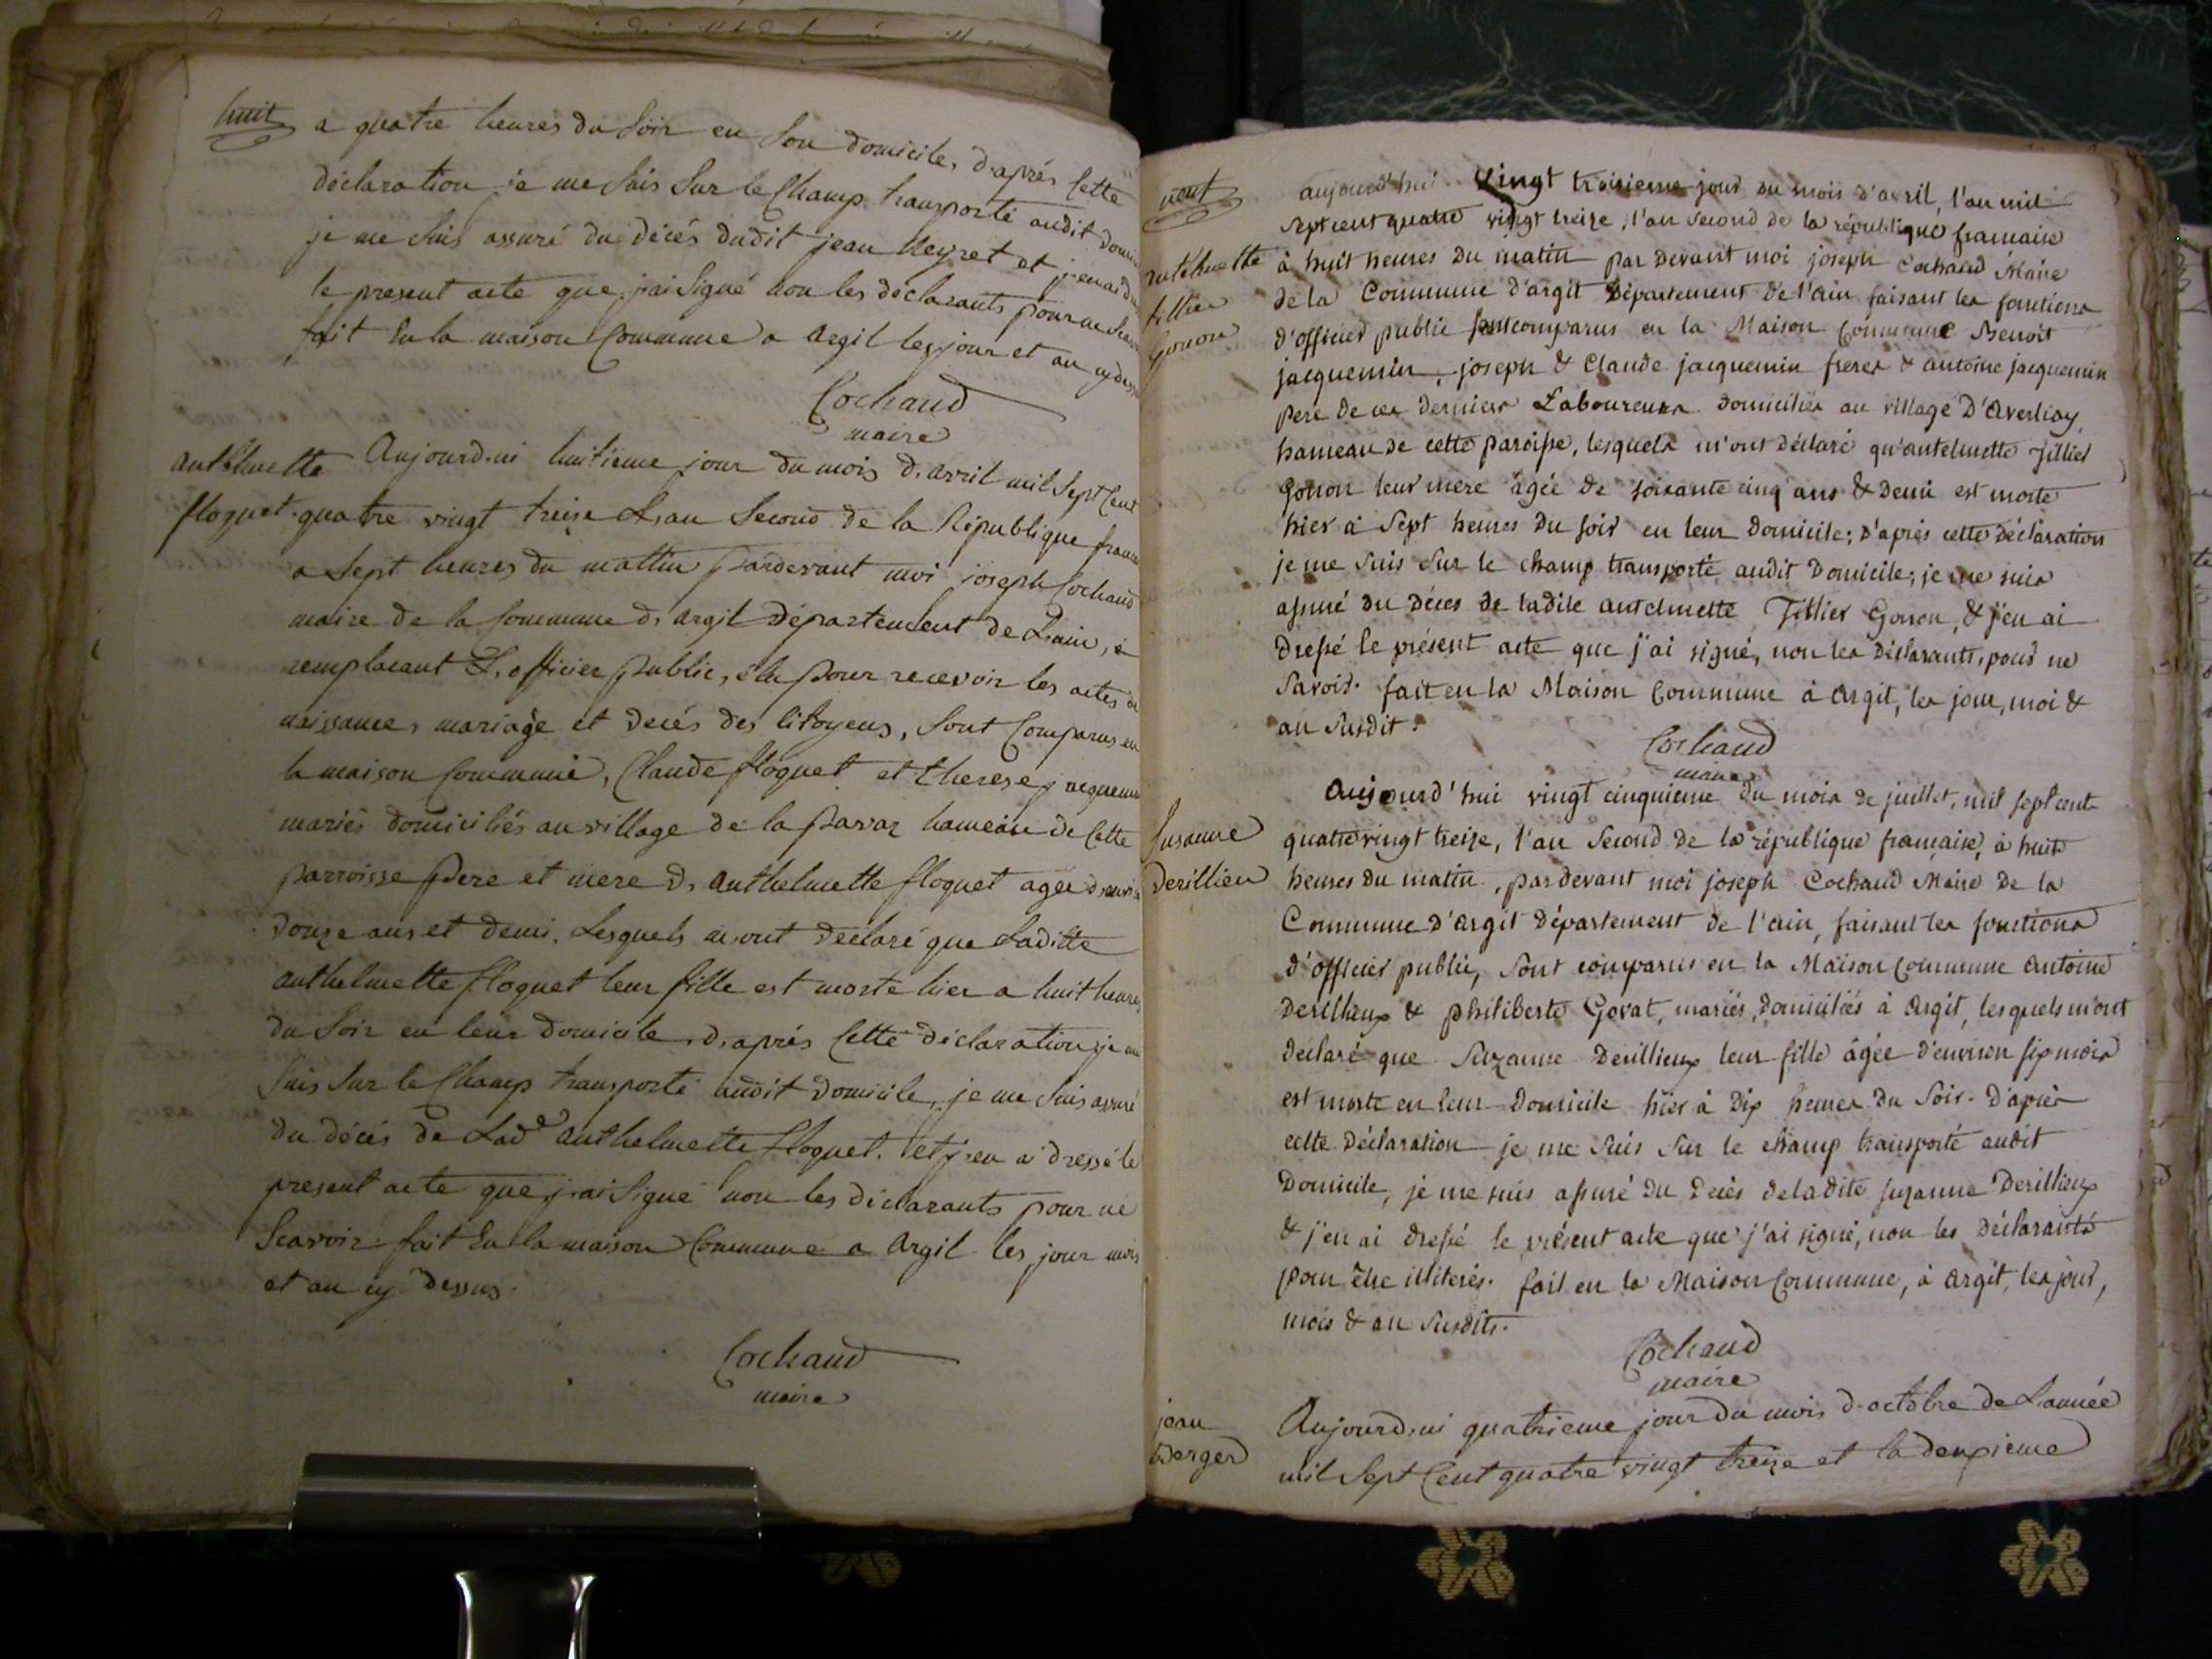 huit
a quatre heures du soir en son domicile, d'aprés cette
déclaration je me suis sur le champ transporté audit
je me suis assuré du décés dudit jean Neyret et j'en ai
le present acte que j'ai signé non les déclarants pour ne
fait en la maison commune a argil les jour et an cy
Cochaud
maire
anthelmette
floquet
Aujourd'ui huitieme jour du mois d'avril mil sept cent
quatre vingt treize L'an second de la République
a sept heures du mattin pardevant moi joseph Cochaud
maire de la commune d'argil département de L'ain, et
remplacant L'officier public, élu pour recevoir les actes de
naissance, mariage et decés des citoyens, sont comparus en
la maison commune, Claude floquet et therese
mariés domiciliés au village de la pavaz hameau de cette
parroisse pere et mere d'anthelmette floquet agée
douze ans et demi. Lesquels m'ont déclaré que Laditte
anthelmette floquet leur fille est morte hier a huit heures
du soir en leur domicile, d'aprés cette déclaration je me
suis sur le champ transporté audit domicile, je me suis assuré
du décés de Lade anthelmette floquet. et j'en ai dressé le
present acte que j'ai signé non les déclarants pour ne
scavoir. fait en la maison commune a argil les jour mois
et an cy dessus.
Cochaud
maire
neuf
antelmette
fillier
Gonon
aujourd'hui vingt troisieme jour du mois d'avril, l'an mil
sept cent quatre vingt treize, l'an second de la république francaise
à huit heures du matin par devant moi joseph Cochaud Maire
de la Commune d'argit Département de l'ain faisant les fonctions
d'officier public sont comparus en la Maison Commune Benoit
jacquemin, joseph & Claude jacquemin freres & antoine jacquemin
pere de ces derniers Laboureurs domiciliés au village D'averliay,
hameau de cette paroisse, lesquels m'ont déclaré qu'antelmette fillier
Gonon leur mere agée de soixante cinq ans & demi est morte
hier à sept heures du soir en leur domicile; d'après cette déclaration
je me suis sur le champ transporté audit domicile; je me suis
assuré du déces de ladite antelmette fillier Gonon, & j'en ai
dressé le présent acte que j'ai signé, non les déclarants, pour ne
savoir. fait en la Maison Commune à argit, les jour, moi &
an susdit.
Cochaud
maire
Suzanne
Derillieu
Aujourd'hui vingt cinquieme du mois de juillet, mil sept cent
quatre vingt treize, l'an second de la république française, à huit
heures du matin, par devant moi joseph Cochaud Maire de la
Commune d'argit département de l'ain, faisant les fonctions
d'officier public, sont comparus en la Maison Commune antoine
Derillieux & philiberte Govat, mariés, domiciliés à argit, lesquels m'ont
déclaré que Suzanne Derillieux leur fille âgée d'environ six mois
est morte en leur domicile hier à dix heures du soir. D'après
cette déclaration je me suis sur le champ transporté audit
domicile, je me suis assuré du decès de ladite suzanne Derillieux
& j'en ai dressé le présent acte que j'ai signé, non les déclarants
pour être illiterés. fait en la Maison Commune, à argit, les jour,
mois & an susdits.
Cochaud
maire
jean
Berger
Aujourd'ui quatrieme jour du mois d'octobre de L'année
mil sept cent quatre vingt treize et la deuxieme